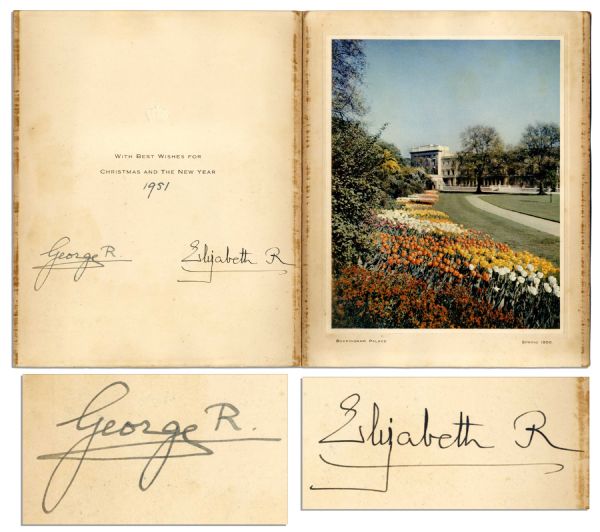 With Best Wishes for
Christmas and The New Year
1951
George R.
Elizabeth R
Buckingham Palace
Spring 1950.
George R.
Elizabeth R